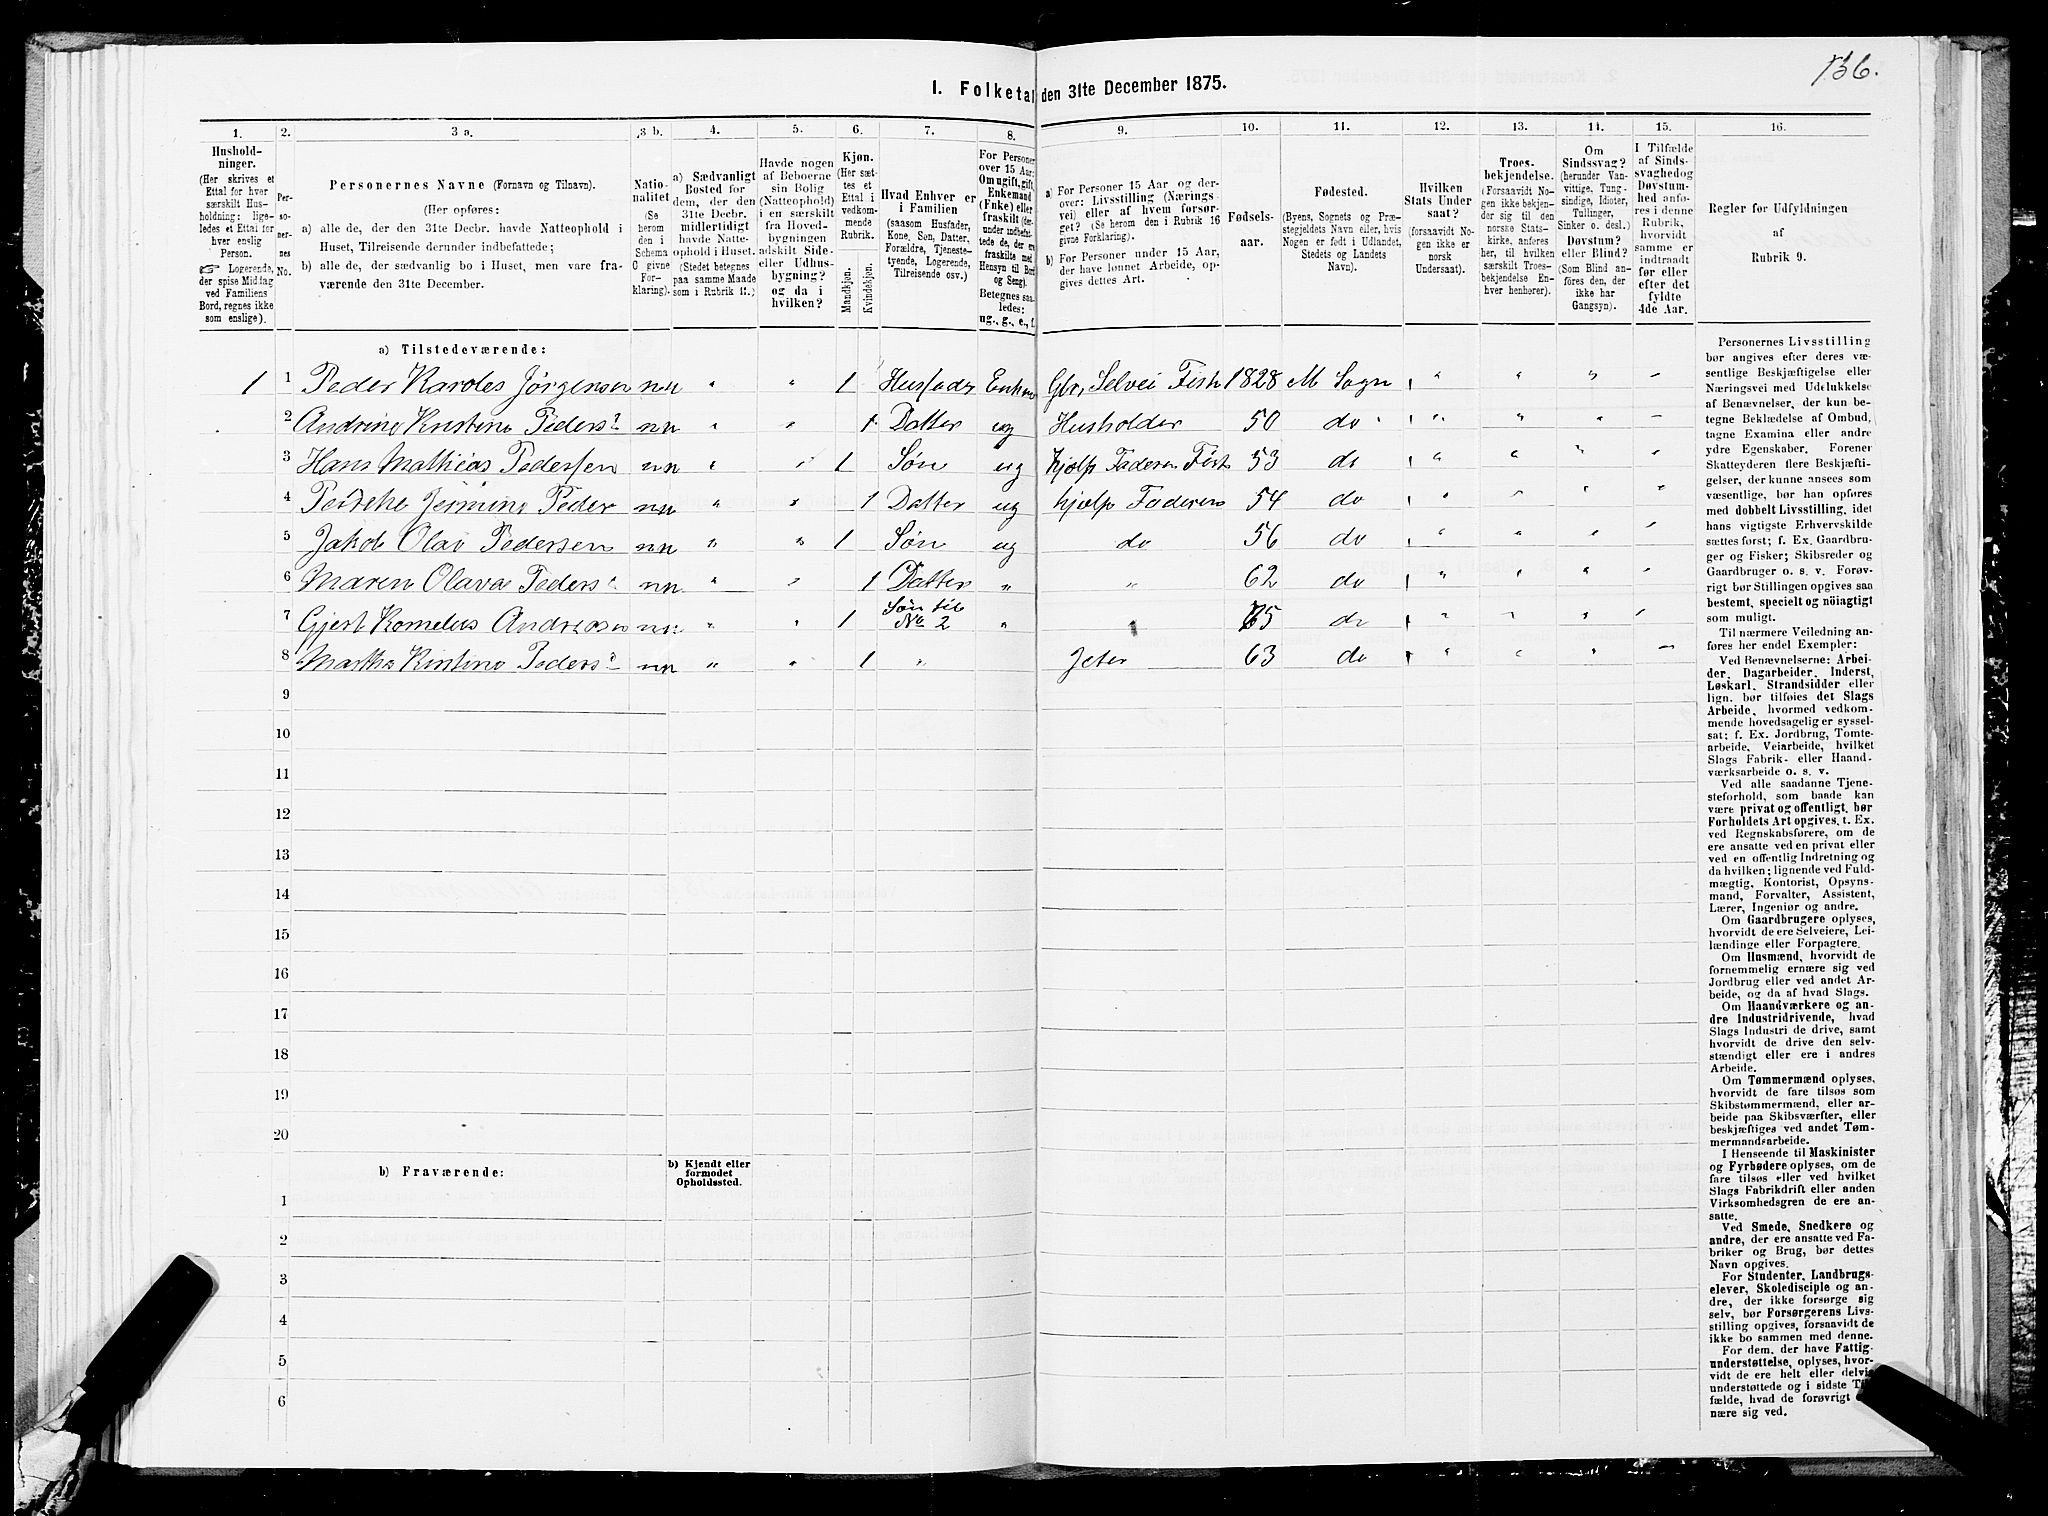 136.
I. Folketal den 31te December 1875.
1. 2. 3 a. 3 b. 4. 5. 6. 7. 8. 9. 10. 11. 12. 13. 14. 15. 16.
Hushold-
ninger.
(Her skrives et
Ettal for hver
særskilt Hus-
holdning: lige-
ledes et Ettal for
hver enslig
Person.
☞ Logerende,
der spise Middag
ved Familiens
Bord, regnes ikke
som enslige).
Per-
so-
ner-
nes
No.
Personernes Navne (Fornavn og Tilnavn).
(Her opføres:
a) alle de, der den 31te Decbr. havde Natteophold i
Huset, Tilreisende derunder indbefattede;
b) alle de, der sædvanlig bo i Huset, men vare fra-
værende den 31te December.
Natio-
nalitet
(Se
herom
den i
Schema
O givne
For-
klaring).
a) Sædvanligt
Bosted for
dem, der den
31te Decbr.
midlertidigt
havde Natte-
ophold i Huset.
(Stedet betegnes
paa samme Maade
som i Rubrik 11.)
Havde nogen
af Beboerne
sin Bolig
(Natteophold)
i en særskilt
fra Hoved-
bygningen
adskilt Side-
eller Udhus-
bygning?
og da i
hvilken?
Kjøn.
(Her sæt-
tes et
Ettal i
vedkom-
mende
Rubrik.
Mandkjøn.
Kvindekjøn.
Hvad Enhver er
i Familien
(saasom Husfader,
Kone, Søn, Datter,
Forældre, Tjeneste-
tyende, Logerende,
Tilreisende osv.)
For Personer
over 15 Aar:
Om ugift, gift,
Enkemand
(Enke) eller
fraskilt (der-
under indbefat-
tede de, der ere
fraskilte med
Hensyn til Bord
og Seng).
Betegnes saa-
ledes:
ug., g., e., f.
a) For Personer 15 Aar og der-
over: Livsstilling (Nærings-
vei) eller af hvem forsør-
get? (Se herom den i Rubrik 16
givne Forklaring).
b) For Personer under 15 Aar,
der have lønnet Arbeide, op-
gives dettes Art.
Fødsels-
aar.
Fødested.
(Byens, Sognets og Præ-
stegjeldets Navn eller, hvis
Nogen er født i Udlandet,
Stedets og Landets
Navn).
Hvilken
Stats Under
saat?
(forsaavidt No-
gen ikke er
norsk
Undersaat).
Troes-
bekjendelse.
(Forsaavidt No-
gen ikke bekjen-
der sig til den
norske Stats-
kirke, anføres
her, til hvilken
særskilt Troes-
bekjendelse En-
hver henhører).
Om
Sindssvag?
(herunder Van-
vittige, Tung-
sindige, Idioter,
Tullinger,
Sinker o. desl.)
Døvstum?
eller Blind?
(Som Blind an-
føres den, der
ikke har
Gangsyn).
I Tilfælde
af Sinds-
svaghed og
Døvstum-
hed anfø-
res i denne
Rubrik,
hvorvidt
samme er
indtraadt
før eller
efter det
fyldte
4de Aar.
Regler for Udfyldningen
af
Rubrik 9.
a) Tilstedeværende:
1 1 Peder Karoles Jørgensen nn " " 1 Husfader Enkem Gbr, Selvei Fisk 1828 M Sogn
2 Andrine Kristine Peders? nn " " 1 Datter ug Husholder 50 do
3 Hans Mathias Pedersen nn " " 1 Søn ug hjælp Faderen Fisk 53 do
4 Jermine Peder nn " " 1 Datter ug hjælp Faderen 54 do
5 Jakob Olav Pedersen nn " " 1 Søn ug do 56 do
6 Maren Olava Peders nn " " 1 Datter " " 62 do
7 Gjert Kornelius Andreasen nn " " 1 Søn til No 2 " " 75 do
8 Martha Kristine Peders nn " " 1 " Jeter 63 do
9
10
11
12
13
14
15
16
17
18
19
20
b) Fraværende:
b) Kjendt eller
formodet
Opholdssted.
1
2
3
4
5
6
Personernes Livsstilling
bør angives efter deres væ-
sentlige Beskjæftigelse eller
Næringsvei med Udelukkelse
af Benævnelser, der kun be-
tegne Beklædelse af Ombud,
tagne Examina eller andre
ydre Egenskaber. Forener
Skatteyderen flere Beskjæfti-
gelser, der kunne ansees som
væsentlige, bør han opføres
med dobbelt Livsstilling, idet
hans vigtigste Erhvervskilde
sættes først; f. Ex. Gaardbru-
ger og Fisker; Skibsreder og
Gaardbruger o. s. v. Forøv-
rigt bør Stillingen opgives saa
bestemt, specielt og nöiagtigt
som muligt.
Til nærmere Veiledning an-
føres her endel Exempler:
Ved Benævnelserne: Arbei-
der, Dagarbeider, Inderst,
Løskarl, Strandsidder eller
lign. bør tilføies det Slags
Arbeide, hvormed vedkom-
mende hovedsagelig er syssel-
sat; f. Ex. Jordbrug, Tomte-
arbeide, Veiarbeide, hvilket
Slags Fabrik- eller Haand-
værksarbeide o. s. v.
Ved alle saadanne Tjene-
steforhold, som baade kan
være privat og offentligt, bør
Forholdets Art opgives, t. Ex.
ved Regnskabsførere, om de
ere ansatte ved en privat eller
ved en offentlig Indretning og
da hvilken; lignende ved Fuld-
mægtig, Kontorist, Opsyns-
mand, Forvalter, Assistent,
Lærer, Ingeniør og andre.
Om Gaardbrugere oplyses,
hvorvidt de ere Selveiere, Lei-
lændinge eller Forpagtere.
Om Husmænd, hvorvidt de
fornemmelig ernære sig ved
Jordbrug eller ved andet Ar-
beide, og da af hvad Slags.
Om Haandværkere og an-
dre Industridrivende, hvad
Slags Industri de drive, samt
hvorvidt de drive den selv-
stændigt eller ere i andres
Arbeide.
Om Tømmermænd oplyses,
hvorvidt de fare tilsøs som
Skibstømmermænd, eller ar-
beide paa Skibsværfter, eller
beskjæftiges ved andet Tøm-
mermandsarbeide.
I Henseende til Maskinister
og Fyrbødere oplyses, om de
fare tilsøs eller ved hvilket
Slags Fabrikdrift eller anden
Virksomhedsgren de ere an-
satte.
Ved Smede, Snedkere og
andre, der ere ansatte ved Fa-
briker og Brug, bør dettes
Navn opgives.
For Studenter, Landbrugs-
elever, Skoledisciple og an-
dre, der ikke forsørge sig
selv, bør Forsørgerens Livs-
stilling opgives, forsaavidt de
ikke bo sammen med denne.
For dem, der have Fattig-
understøttelse, oplyses, hvor-
vidt de ere helt eller delvis
understøttede og i sidste Til-
fælde, hvad de forøvrigt er-
nære sig ved.